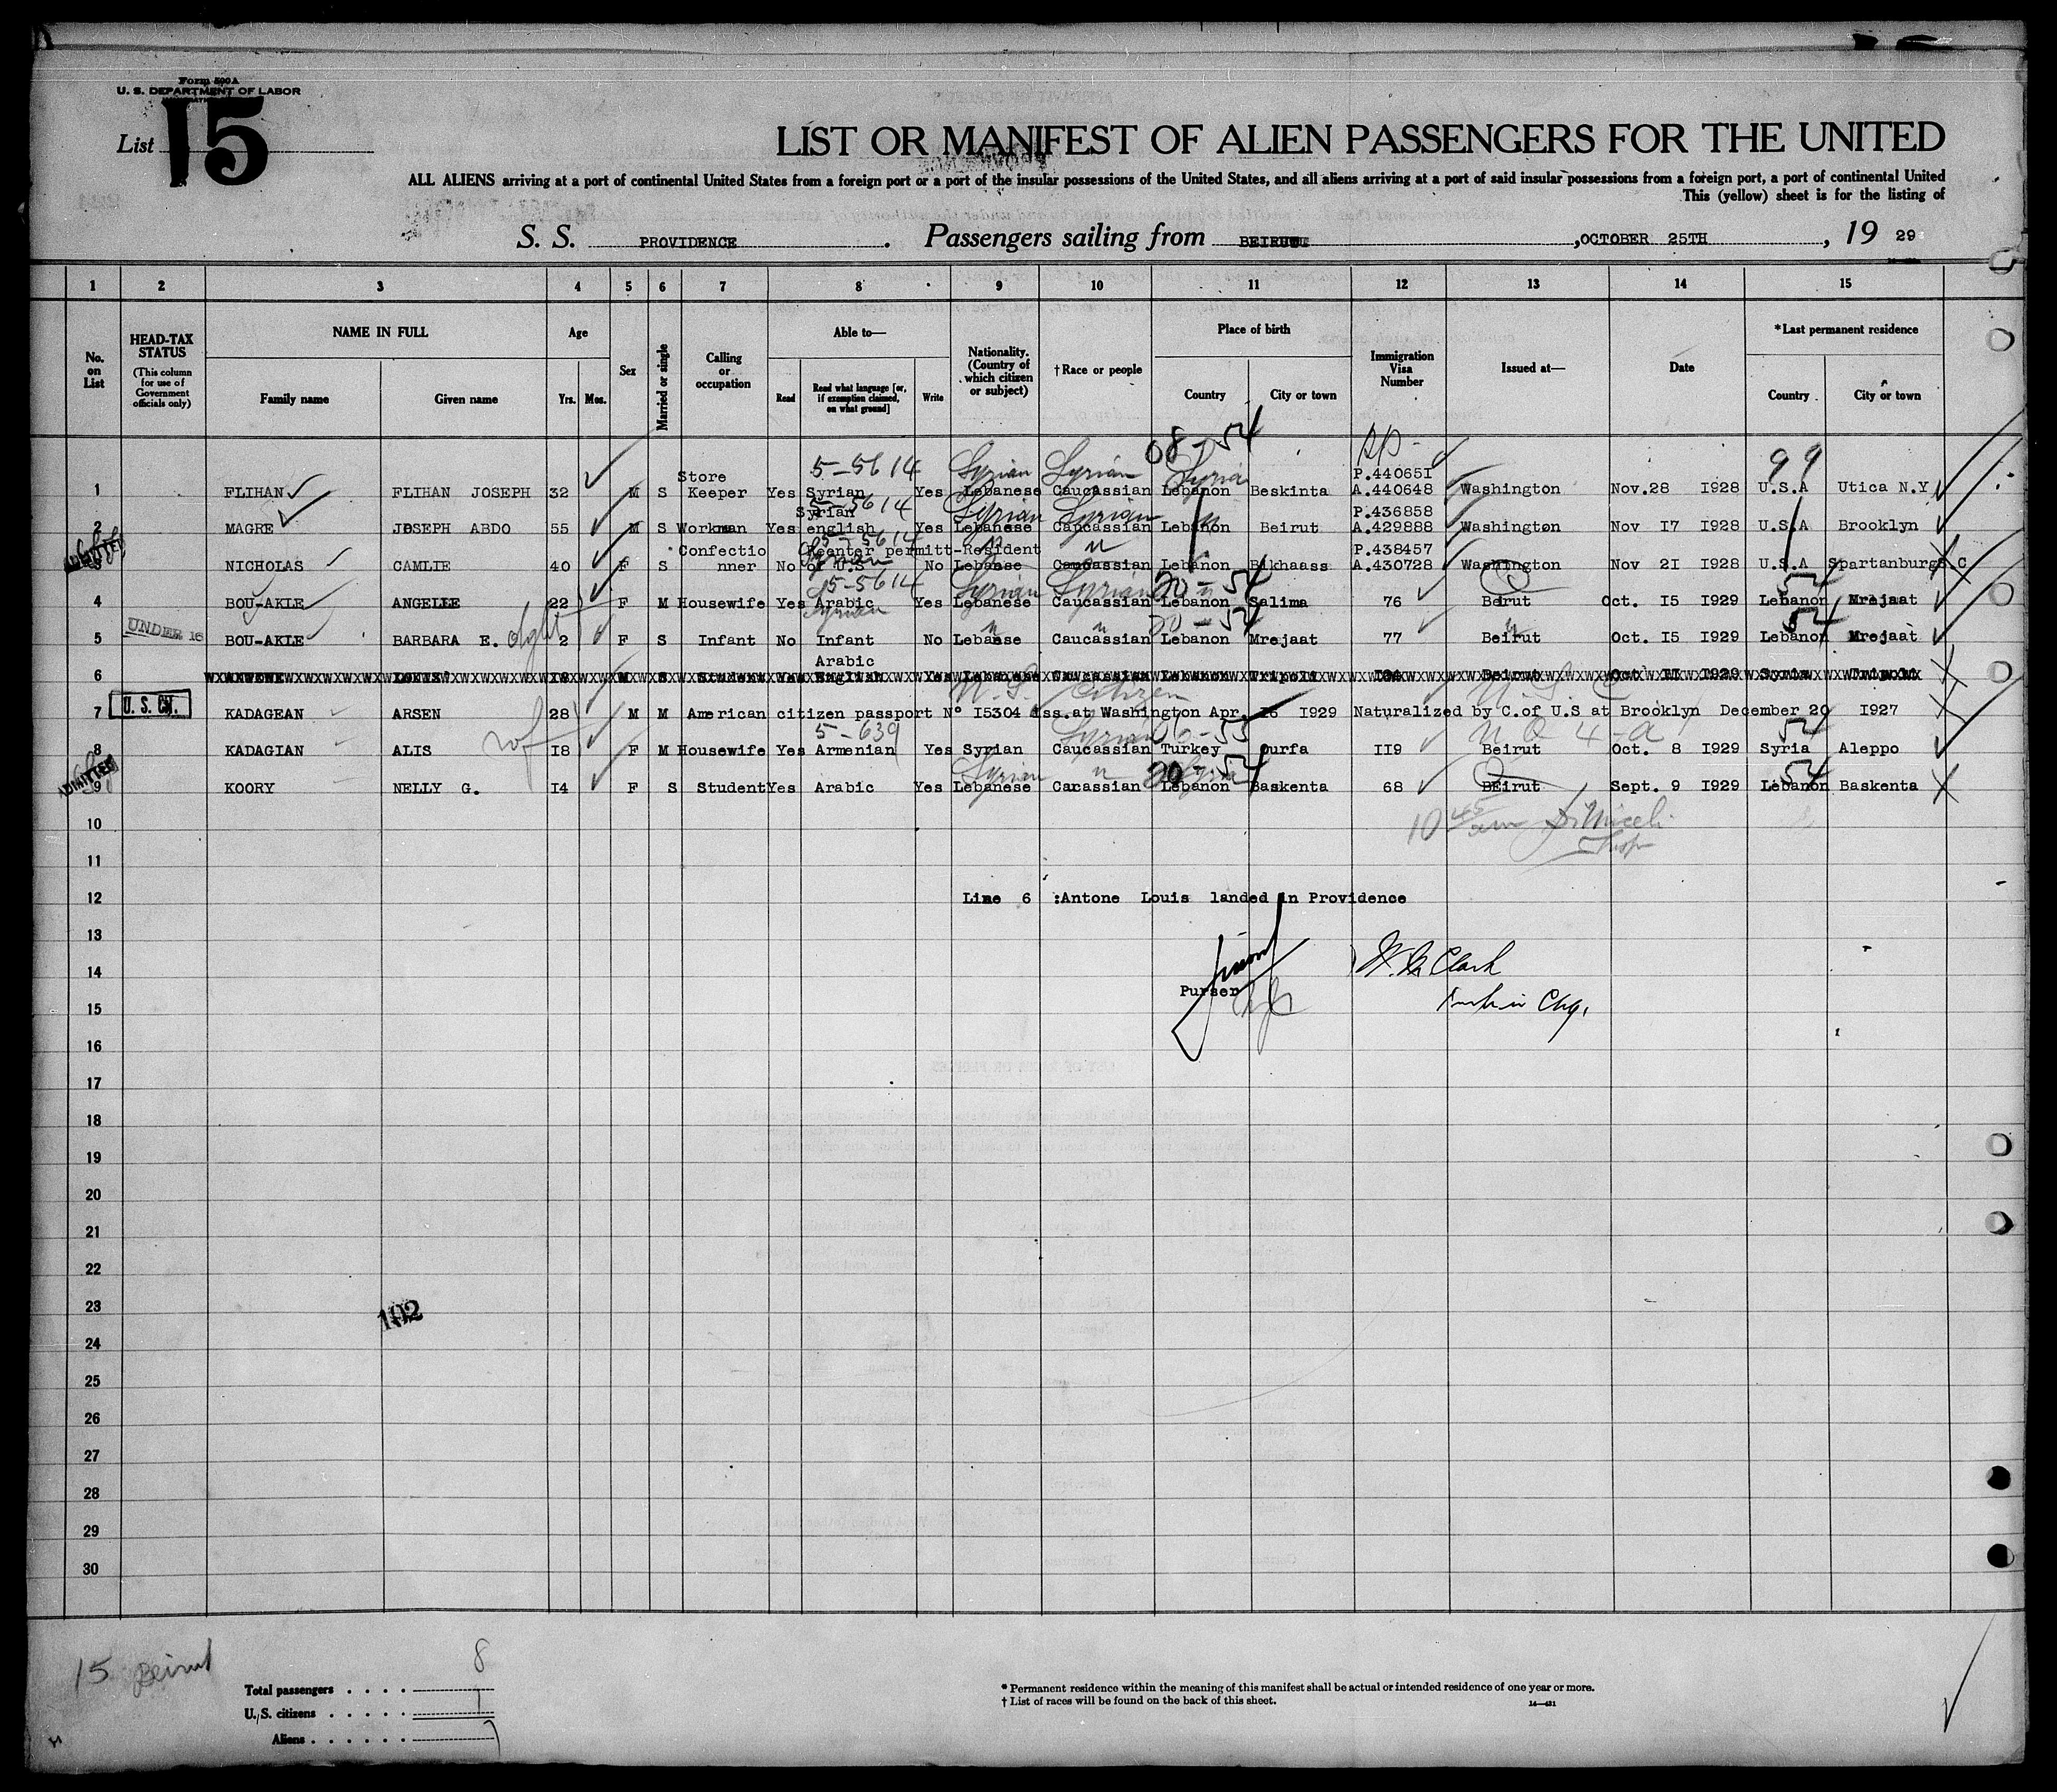 Form 500A
U. S. DEPARTMENT OF LABOR
List 15
LIST OR MANIFEST OF ALIEN PASSENGERS FOR THE UNITED
ALL ALIENS arriving at a port of continental United States from a foreign port or a port of the insular possessions of the United States, and all aliens arriving at a port of said insular possessions from a foreign port, a port of continental United
This (yellow) sheet is for the listing of
S. S. PROVIDENCE. Passengers sailing from BEIRUT, OCTOBER 25TH, 19 29
1 2 3 4 5 6 7 8 9 10 11 12 13 14 15
No. on List
HEAD-TAX STATUS (This column for use of Government officials only)
NAME IN FULL
Family name Given name
Age
Yrs. Mos.
Sex
Married or single
Calling or occupation
Able to—
Read Read what language [or, if exemption claimed, on what ground] Write
Nationality. (Country of which citizen or subject)
†Race or people
Place of birth
Country City or town
Immigration Visa Number
Issued at—
Date
*Last permanent residence
Country City or town
5-5614 Syrian Syrian 08-54 Syria 99
Store P.440651
1 FLIHAN FLIHAN JOSEPH 32 M S Keeper Yes Syrian Yes Lebanese Caucassian Lebanon Beskinta A.440648 Washington Nov.28 I928 U.S.A Utica N.Y
5-5614 Syrian Syrian
Syrian P.436858
2 MAGRE JOSEPH ABDO 55 M S Workman Yes english Yes Lebanese Caucassian Lebanon Beirut A.429888 Washington Nov I7 I928 U.S.A Brooklyn
ADMITTED 5-5614
Confectio Reenter permitt-Resident P.438457
3 NICHOLAS CAMLIE 40 F S nner No of U.S No Lebanse Caucassian Lebanon Bikhaass A.430728 Washington Nov 2I I928 U.S.A Spartanburg S.C
5-5614 Syrian Syrian 20-54 54
4 BOU-AKLE ANGELLE 22 F M Housewife Yes Arabic Yes Lebanese Caucassian Lebanon Salima 76 Beirut Oct. I5 I929 Lebanon Mrejaat
Syrian 20-54 54
UNDER 16
5 BOU-AKLE BARBARA E. dght 2 F S Infant No Infant No Lebanse Caucassian Lebanon Mrejaat 77 Beirut Oct. I5 I929 Lebanon Mrejaat
Arabic
6 Student Yes English Yes Lebanese Caucassian Lebanon Tripoli Beirut Oct I929 Syria Tripoli
U.S. Citizen U.S.C
U. S. CIT.
7 KADAGEAN ARSEN 28 M M American citizen passport N° I5304 iss.at Washington Apr. I6 I929 Naturalized by C.of U.S at Brooklyn December 20 I927
5-639 Syrian 06-55 N Q 4-a 54
8 KADAGIAN ALIS wf I8 F M Housewife Yes Armenian Yes Syrian Caucassian Turkey Ourfa II9 Beirut Oct. 8 I929 Syria Aleppo
ADMITTED Syrian 20-54 Syria 54
9 KOORY NELLY G. I4 F S Student Yes Arabic Yes Lebanese Cacassian Lebanon Baskenta 68 BEirut Sept. 9 I929 Lebanon Baskenta
10 10 45 am
11
12 Line 6 :Antone Louis landed in Providence
13
14 Clark
Purser
15
16
17
18
19
20
21
22
23
102
24
25
26
27
28
29
30
15 Beirut
Total passengers . . . . 8
U. S. citizens . . . . . 1
Aliens . . . . . . 7
* Permanent residence within the meaning of this manifest shall be actual or intended residence of one year or more.
† List of races will be found on the back of this sheet.
14—421